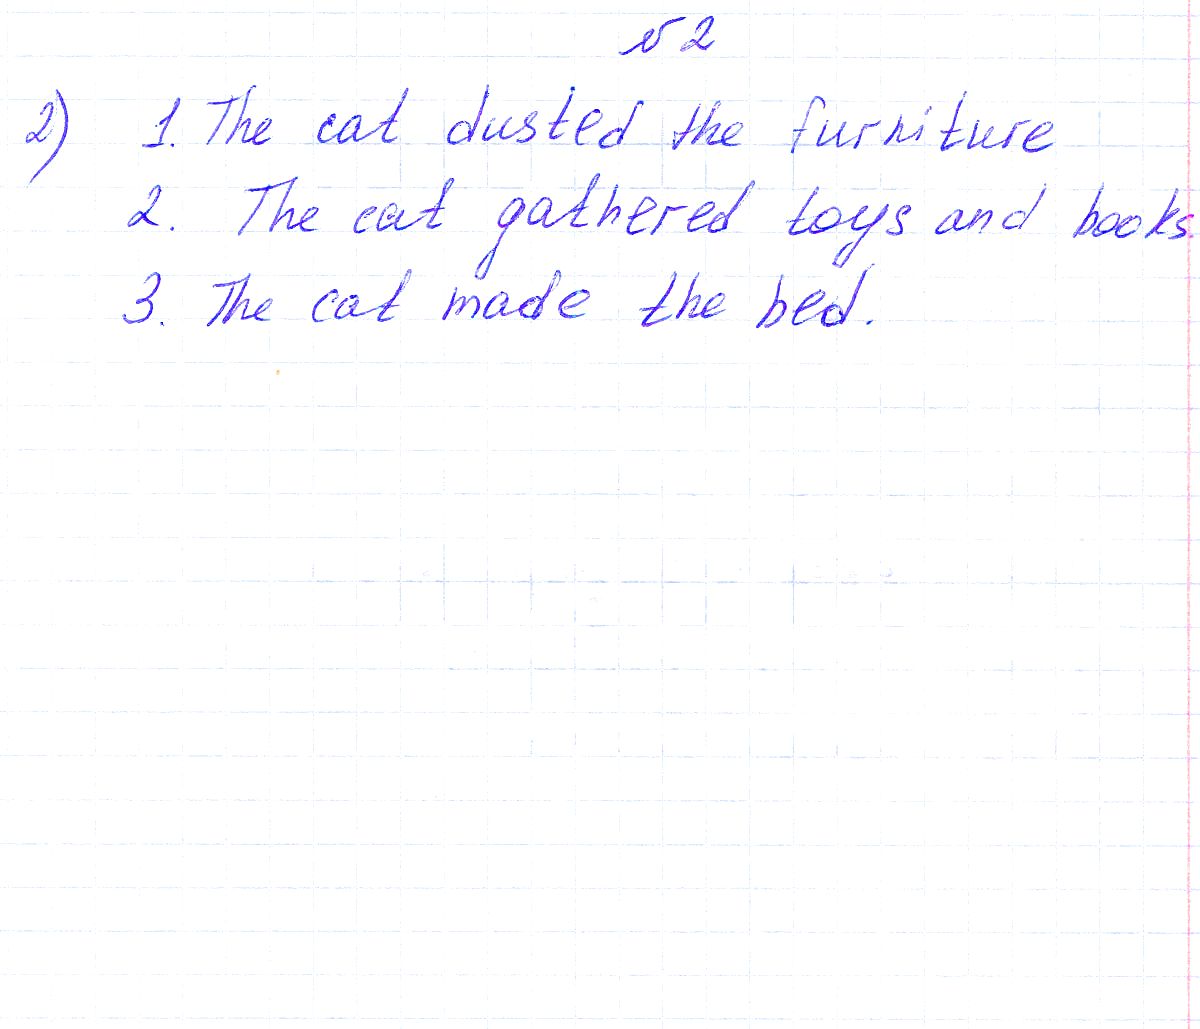 № 2
2) 1. The cat dusted the furniture
2. The cat gathered toys and books.
3. The cat made the bed.